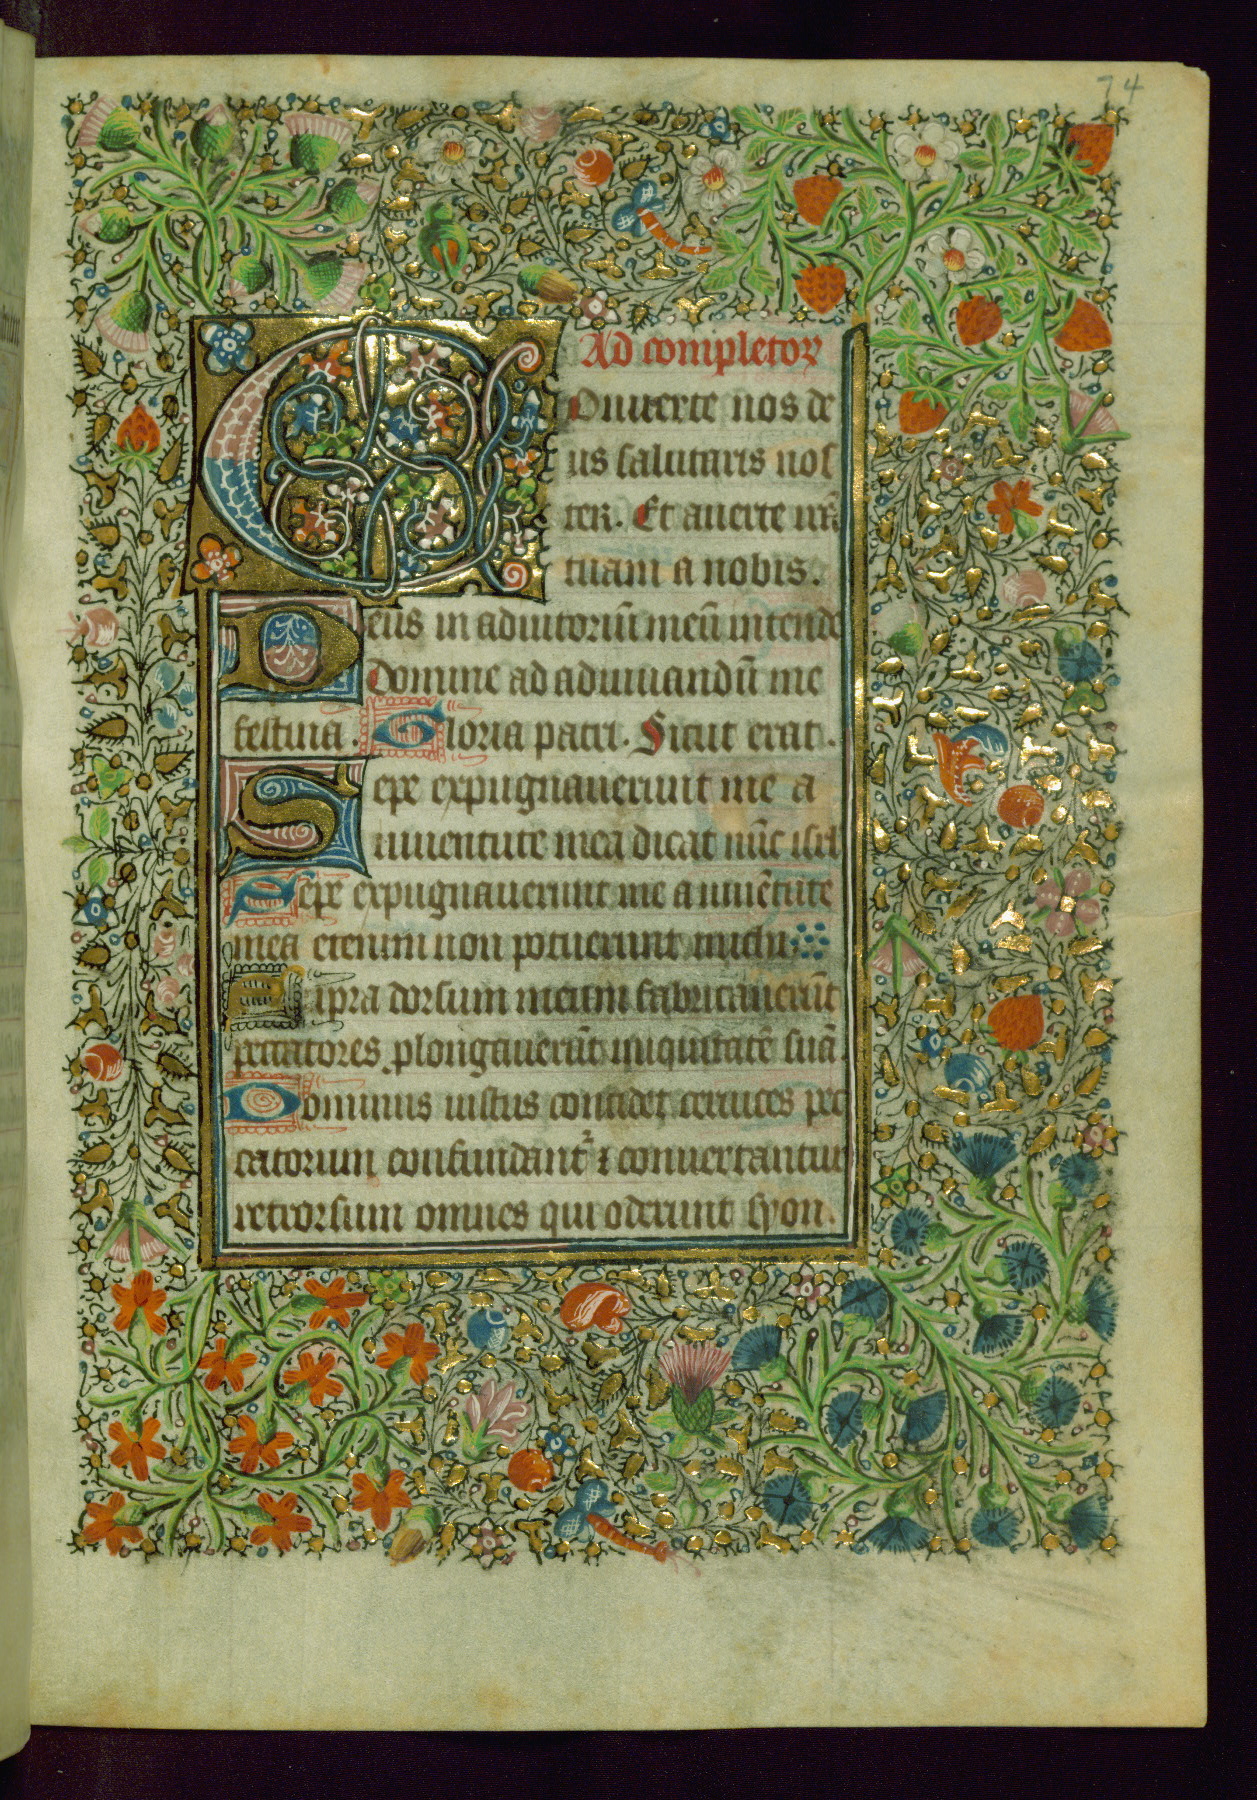 74
Ad completor
Onuerte nos de
us salutaris nos
ter. Et auerte irā
tuam a nobis.
Deus in adiutoriū meū intende
Domine ad adiuuandū me
festina. Gloria patri. Sicut erat.
Sepe expugnauerunt me a
iuuentute mea dicat nūc isrl
Sepe expugnauerunt me a iuuētute
mea etenim non potuerunt michi
Supra dorsum meum fabricauerūt
peccatores plongauerūt iniquitatē suā
Dominus iustus concidet ceruices pec
catorum confundant² ⁊ conuertantur
retrorsum omnes qui oderunt syon.